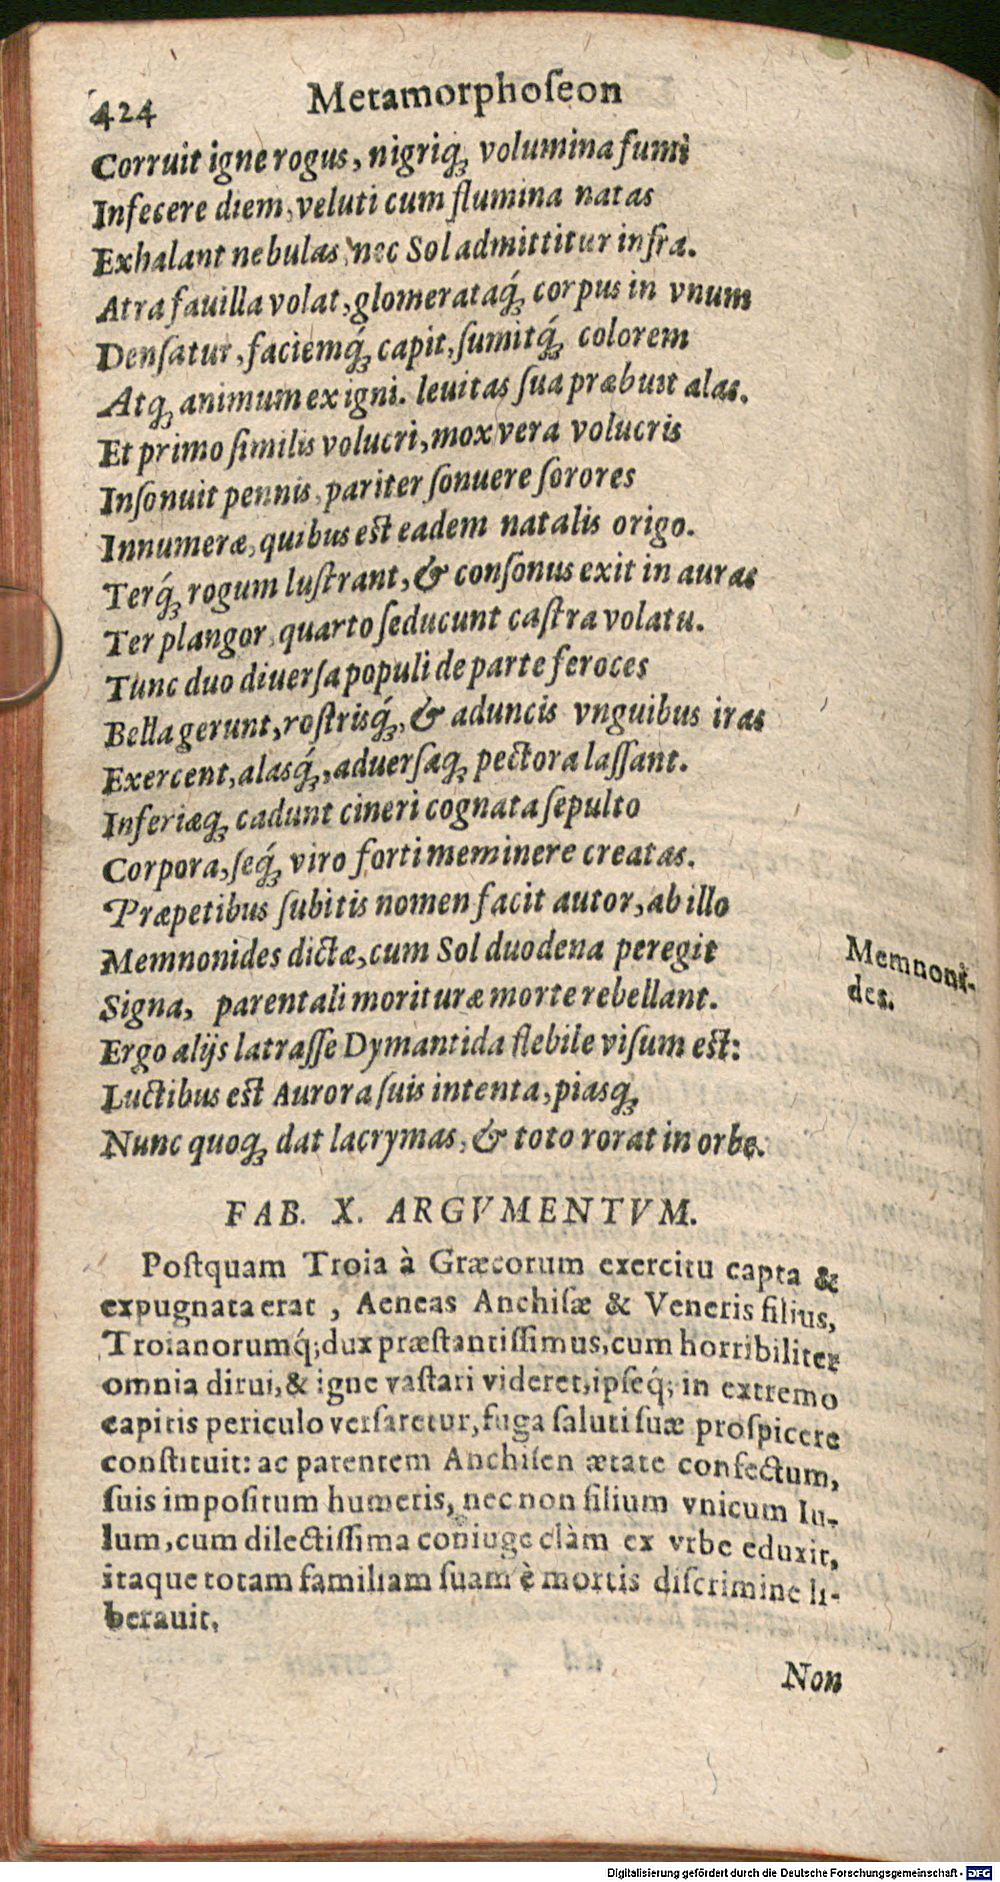 424 Metamorphoſeon
Corruit igne rogus, nigriq́; volumina fumi
Infecere diem, veluti cum flumina natas
Exhalant nebulas, nec Sol admittitur infra.
Atra fauilla volat, glomerataq́; corpus in vnum
Denſatur, faciemq́; capit, ſumitq́; colorem
Atq; animum ex igni. leuitas ſua præbuit alas.
Et primo ſimilis volucri, mox vera volucris
Inſonuit pennis, pariter ſonuere ſorores
Innumeræ, quibus est eadem natalis origo.
Terq́; rogum luſtrant, & conſonus exit in auras
Ter plangor, quarto ſeducunt caſtra volatu.
Tunc duo diuerſa populi de parte feroces
Bella gerunt, roſtrisq́;, & aduncis vnguibus iras
Exercent, alasq́;, aduerſaq; pectora laſſant.
Inferiæq; cadunt cineri cognata ſepulto
Corpora, ſeq́; viro forti meminere creatas.
Præpetibus ſubitis nomen facit autor, ab illo
Memnonides dictæ, cum Sol duodena peregit
Memnoni-
des.
Signa, parentali morituræ morte rebellant.
Ergo alijs latraſſe Dymantida flebile viſum est:
Luctibus est Aurora ſuis intenta, piasq;
Nunc quoq; dat lacrymas, & toto rorat in orbe.
FAB. X. ARGVMENTVM.
Poſtquam Troia à Græcorum exercitu capta &
expugnata erat, Aeneas Anchiſæ & Veneris filius,
Troianorumq́; dux præſtantiſſimus, cum horribiliter
omnia dirui, & igne vaſtari videret, ipſeq́; in extremo
capitis periculo verſaretur, fuga ſaluti ſuæ proſpicere
conſtituit: ac parentem Anchiſen ætate confectum,
ſuis impoſitum humeris, nec non filium vnicum Iu-
lum, cum dilectiſſima coniuge clàm ex vrbe eduxit,
itaque totam familiam ſuam è mortis diſcrimine li-
berauit.
Non
Digitalisierung gefördert durch die Deutsche Forschungsgemeinschaft - DFG